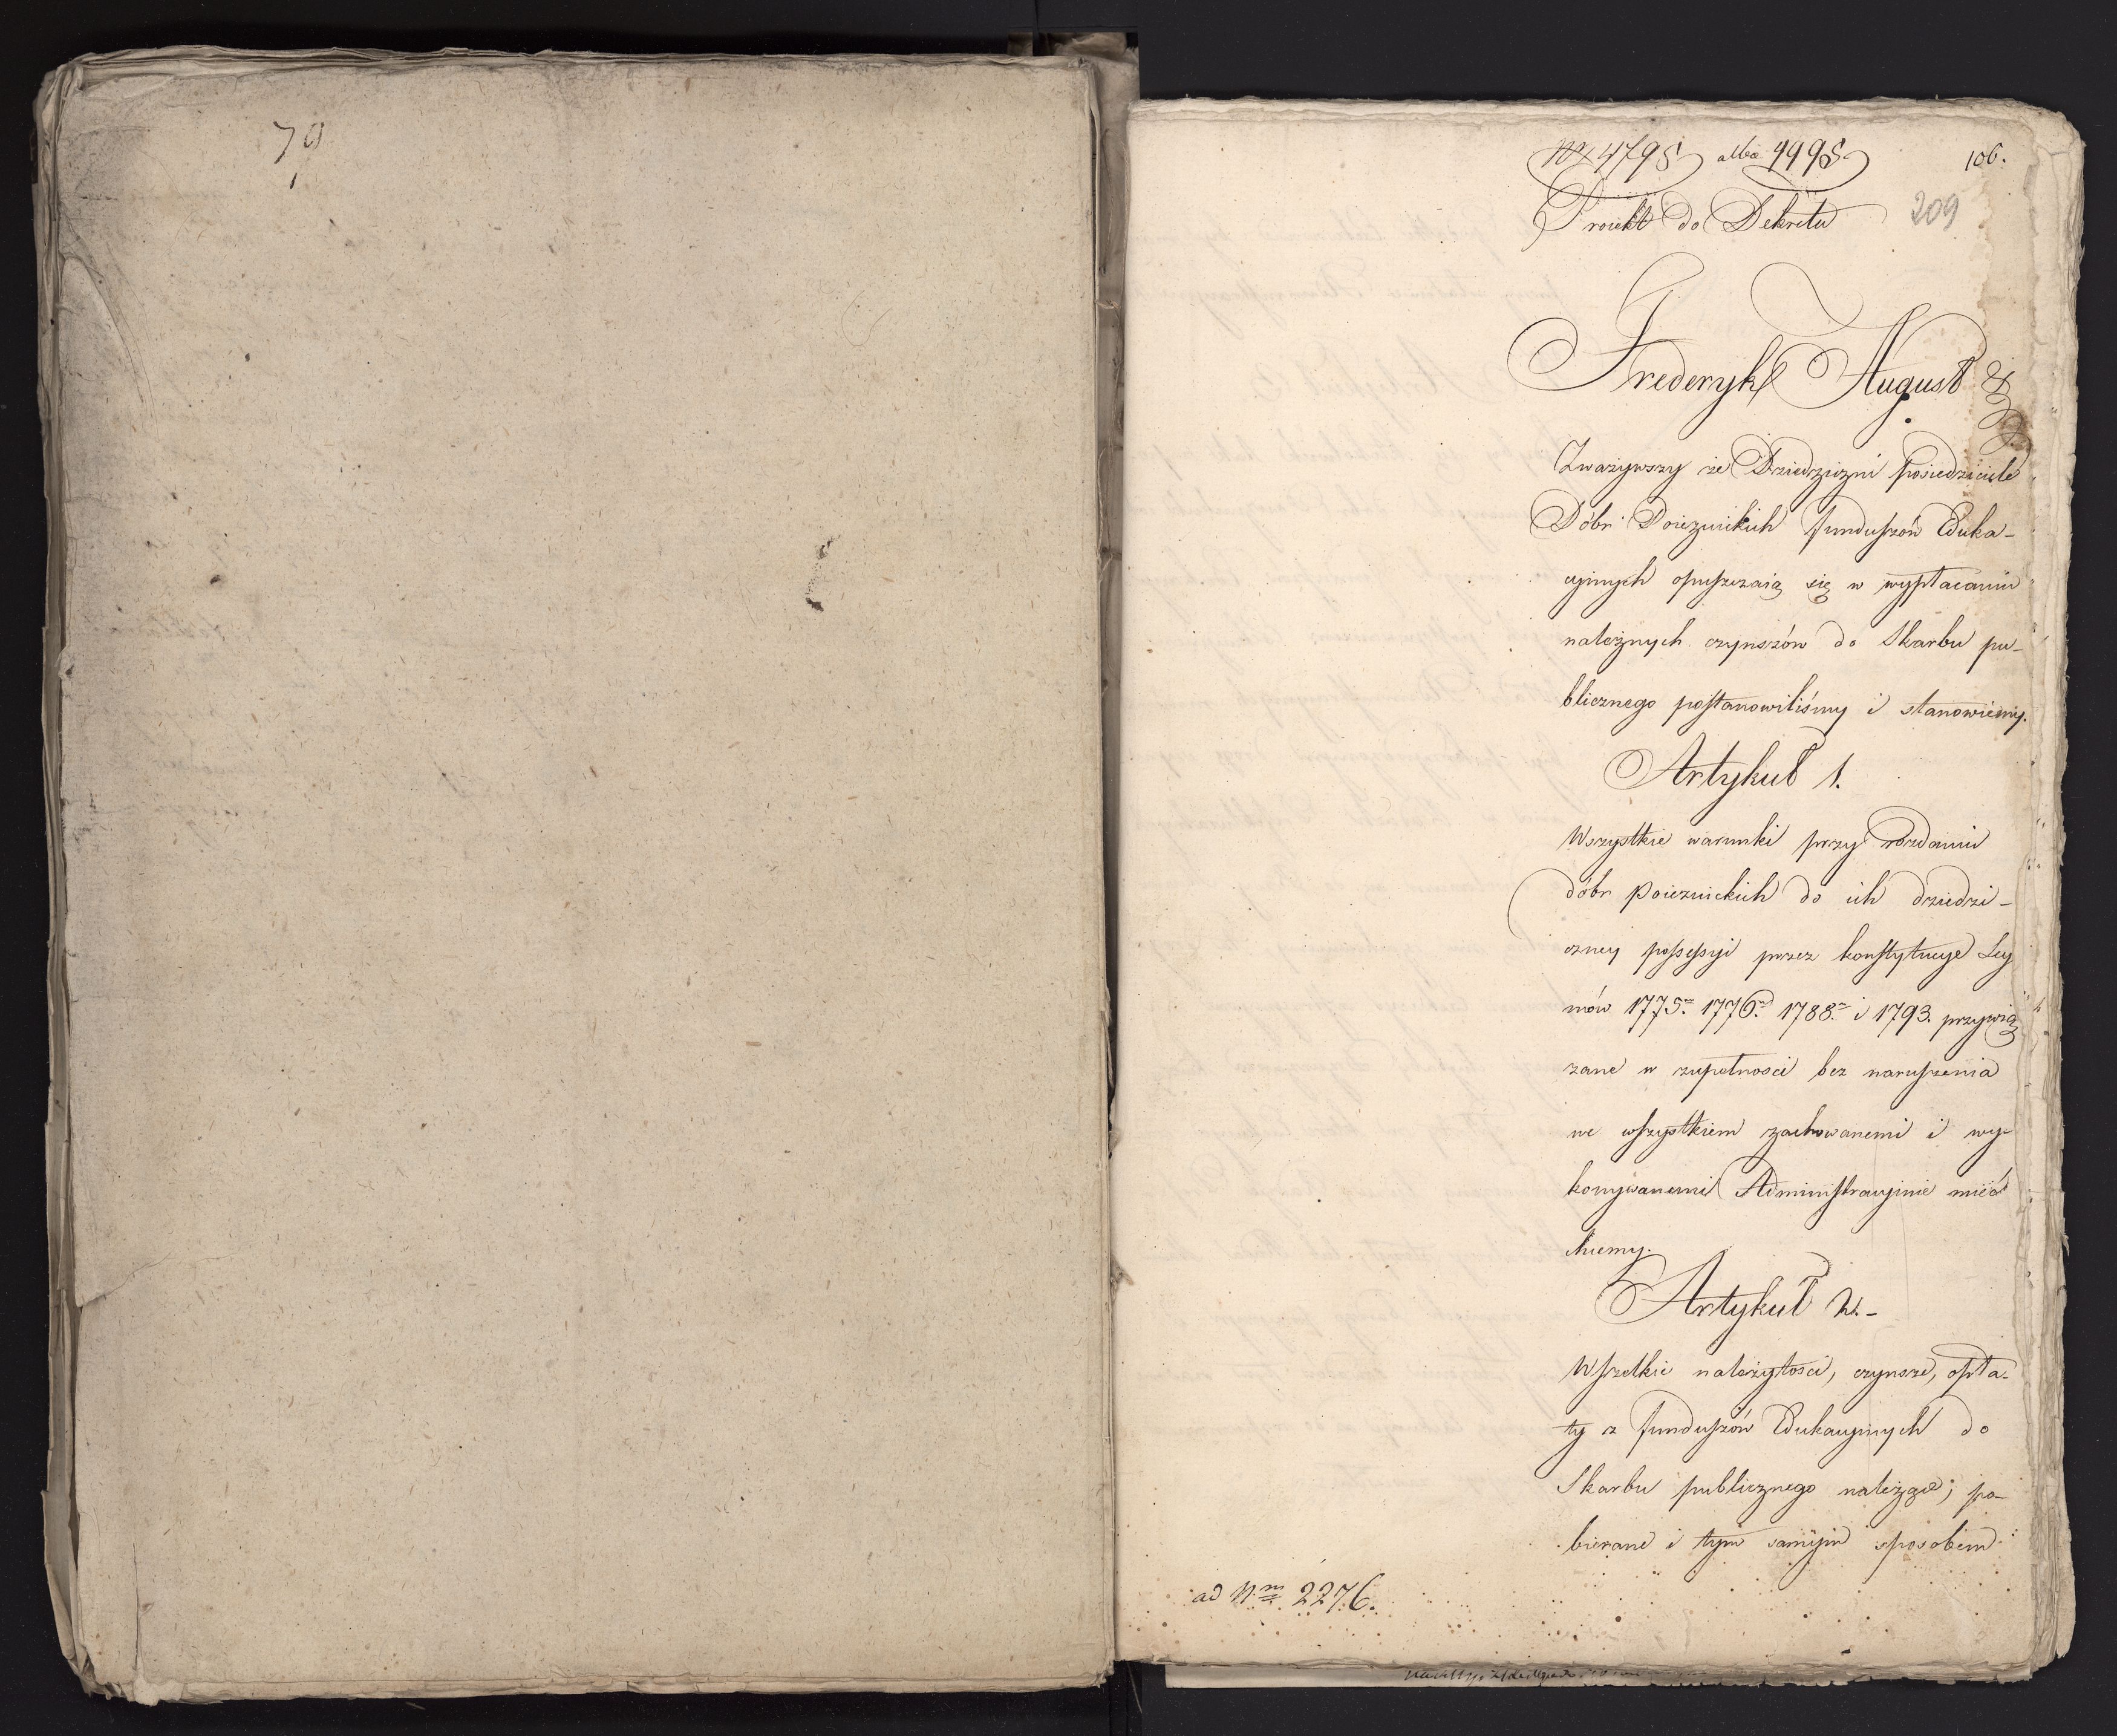 79
Nr 4795 albo 4495.
106.
209
Proiekt do Dekretu
Frederyk August
Zważywszy że Dziedziczni posiedziciele
Dóbr Poiezuickich funduszów Eduka-
cyinych opuszczaią się w wypłacaniu
należnych czynszów do Skarbu pu-
blicznego postanowiliśmy i stanowiemy.
Artykuł 1.
Wszystkie warunki przy rozdaniu
dóbr Poiezuickich do ich dziedzi-
czney possessyi przez konstytucye Sey
mów 1775. 1776. 1788. i 1793. przywią
zane w zupełności bez naruszenia
we wszystkiem zachowanemi i wy-
konywanemi Administracyinie mieć
chcemy.
Artykuł 2.-
Wszelkie należytości, czynsze, opła-
ty z funduszów Edukacyinych do
Skarbu publicznego należące; po-
bierane i tym samym sposobem
ad N.m 2276.